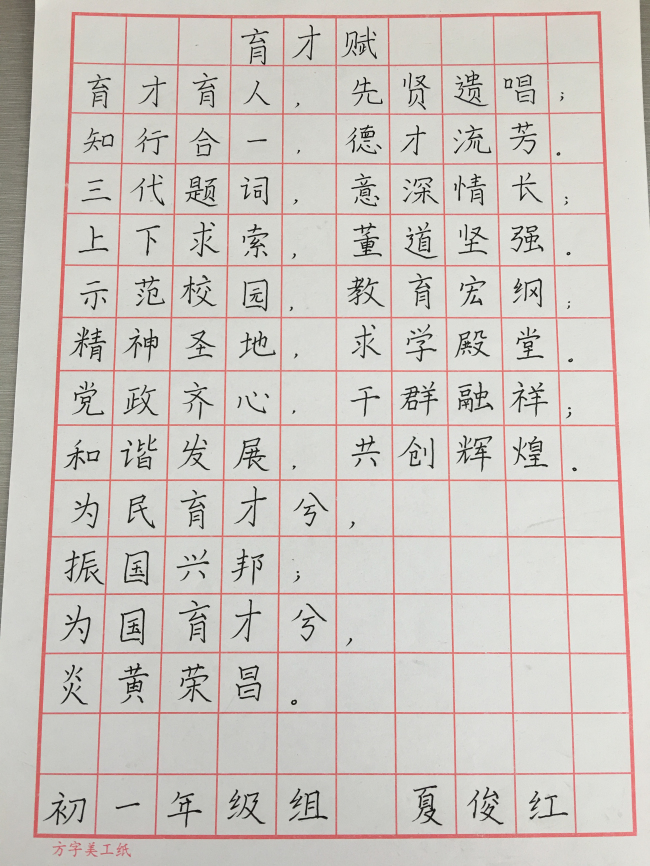 育才赋
育才育人,先贤遗唱;
知行合一,德才流芳。
三代题词,意深情长;
上下求索,董道坚强。
示范校园,教育宏纲;
精神圣地,求学殿堂。
党政齐心,干群融祥;
和谐发展,共创辉煌。
为民育才兮,
振国兴邦;
为国育才兮,
炎黄荣昌。
初一年级组 夏俊红
方字美工纸